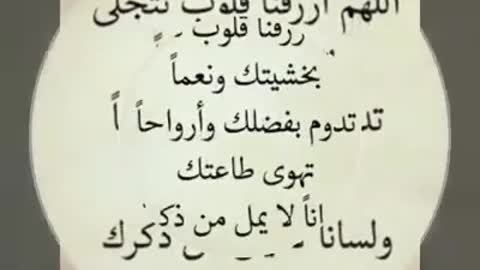 اللهم ارزقنا قلوب تتجلى
رزقنا قلوب
بخشيتك ونعماً
تدتدوم بفضلك وأرواحاً اً
تهوى طاعتك
اناً لا يمل من ذكر
ولسانا ذكرك